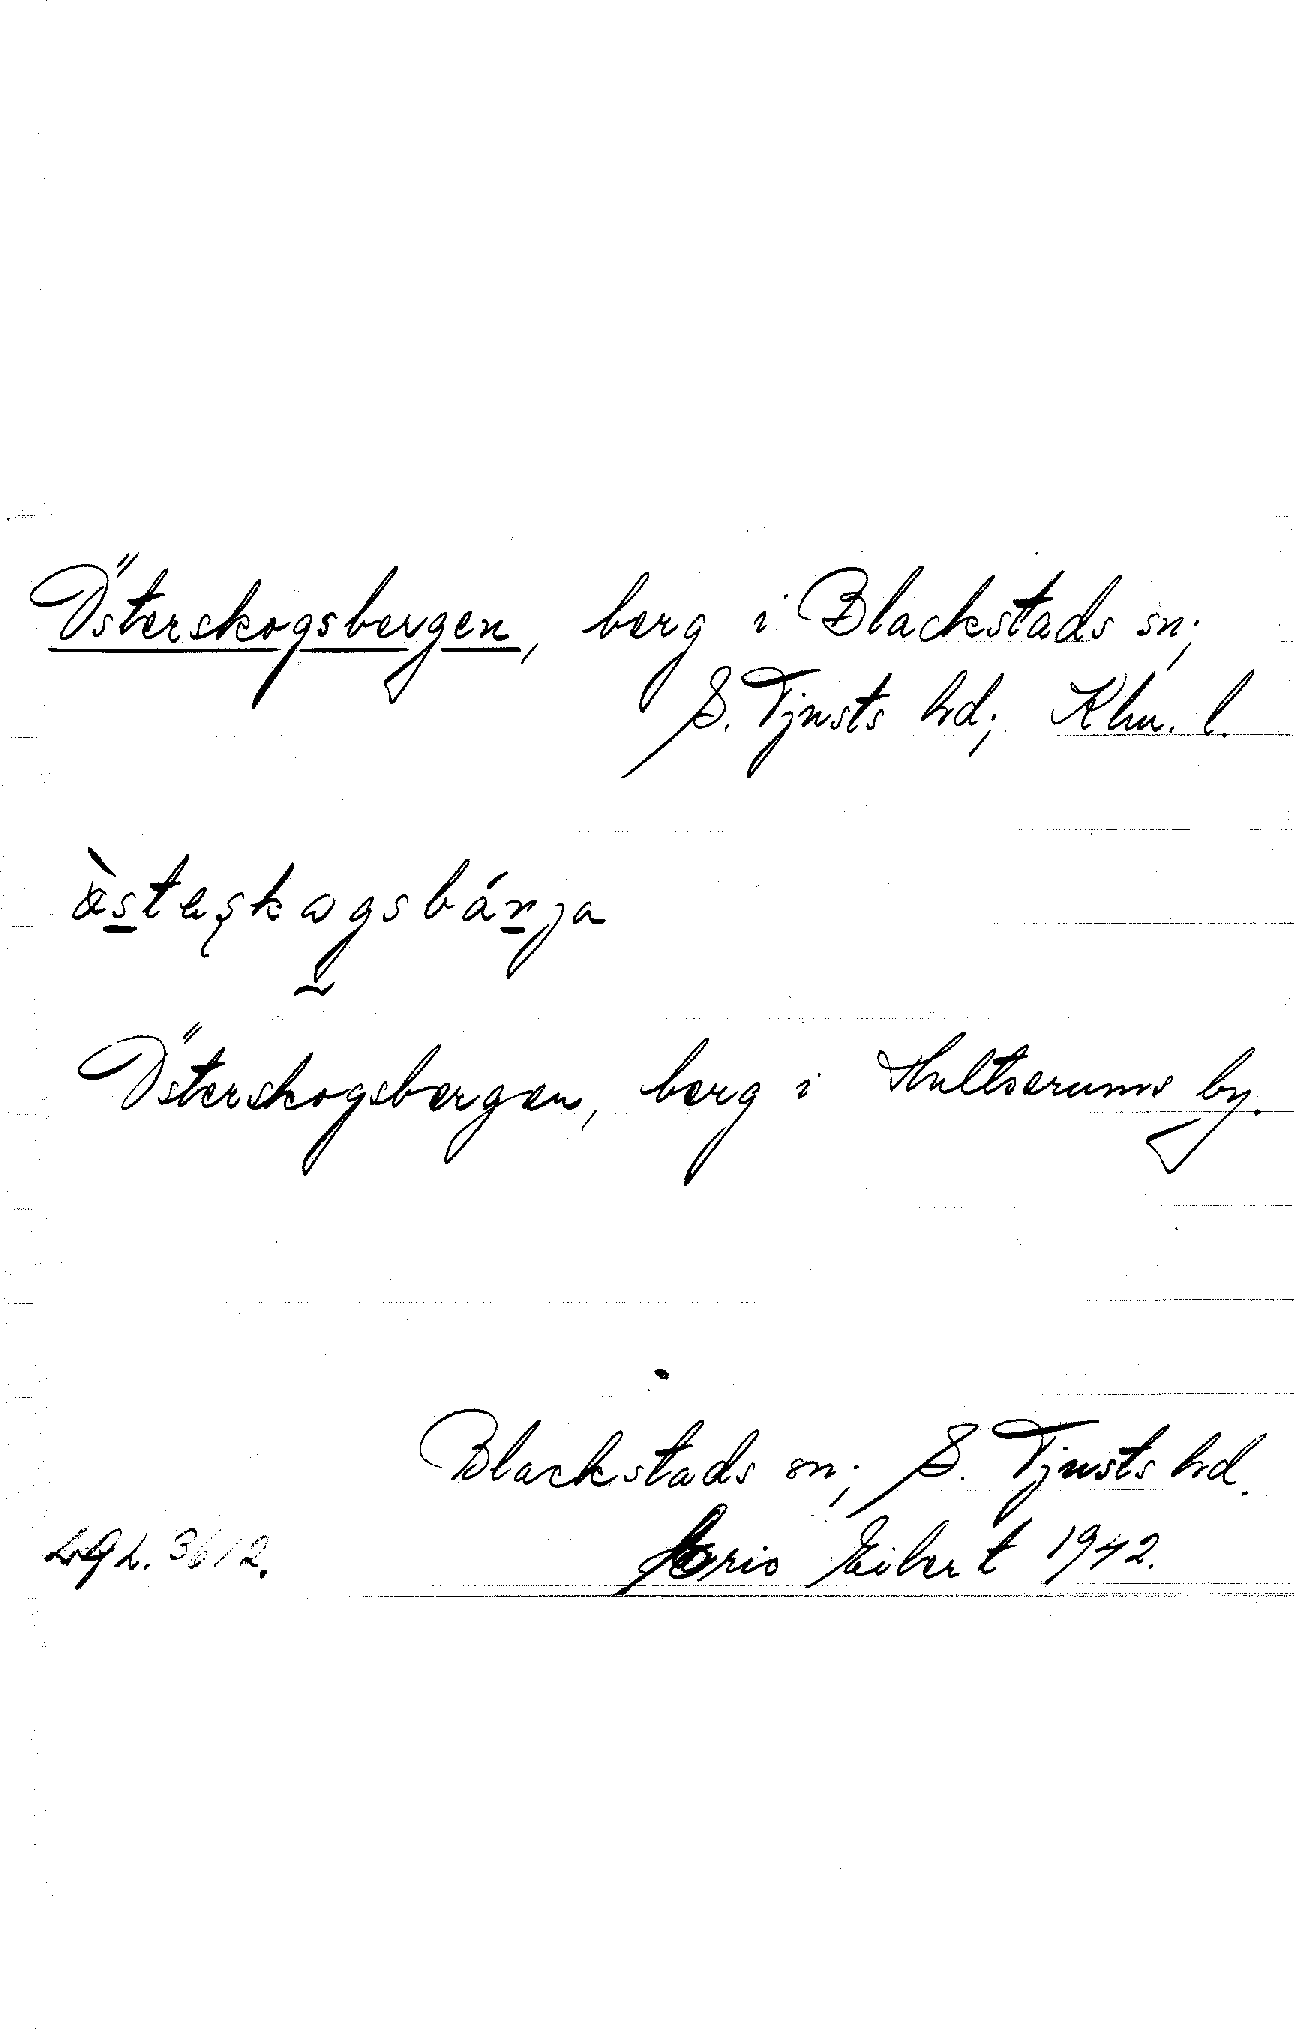 Österskogsbergen, berg i Blackstads sn;
S. Tjusts hd; Klm. l.
Österskogsbergen, berg i Hultserums by.
Blackstads sn; S. Tjusts hd.
Eibert 1942.
3612.